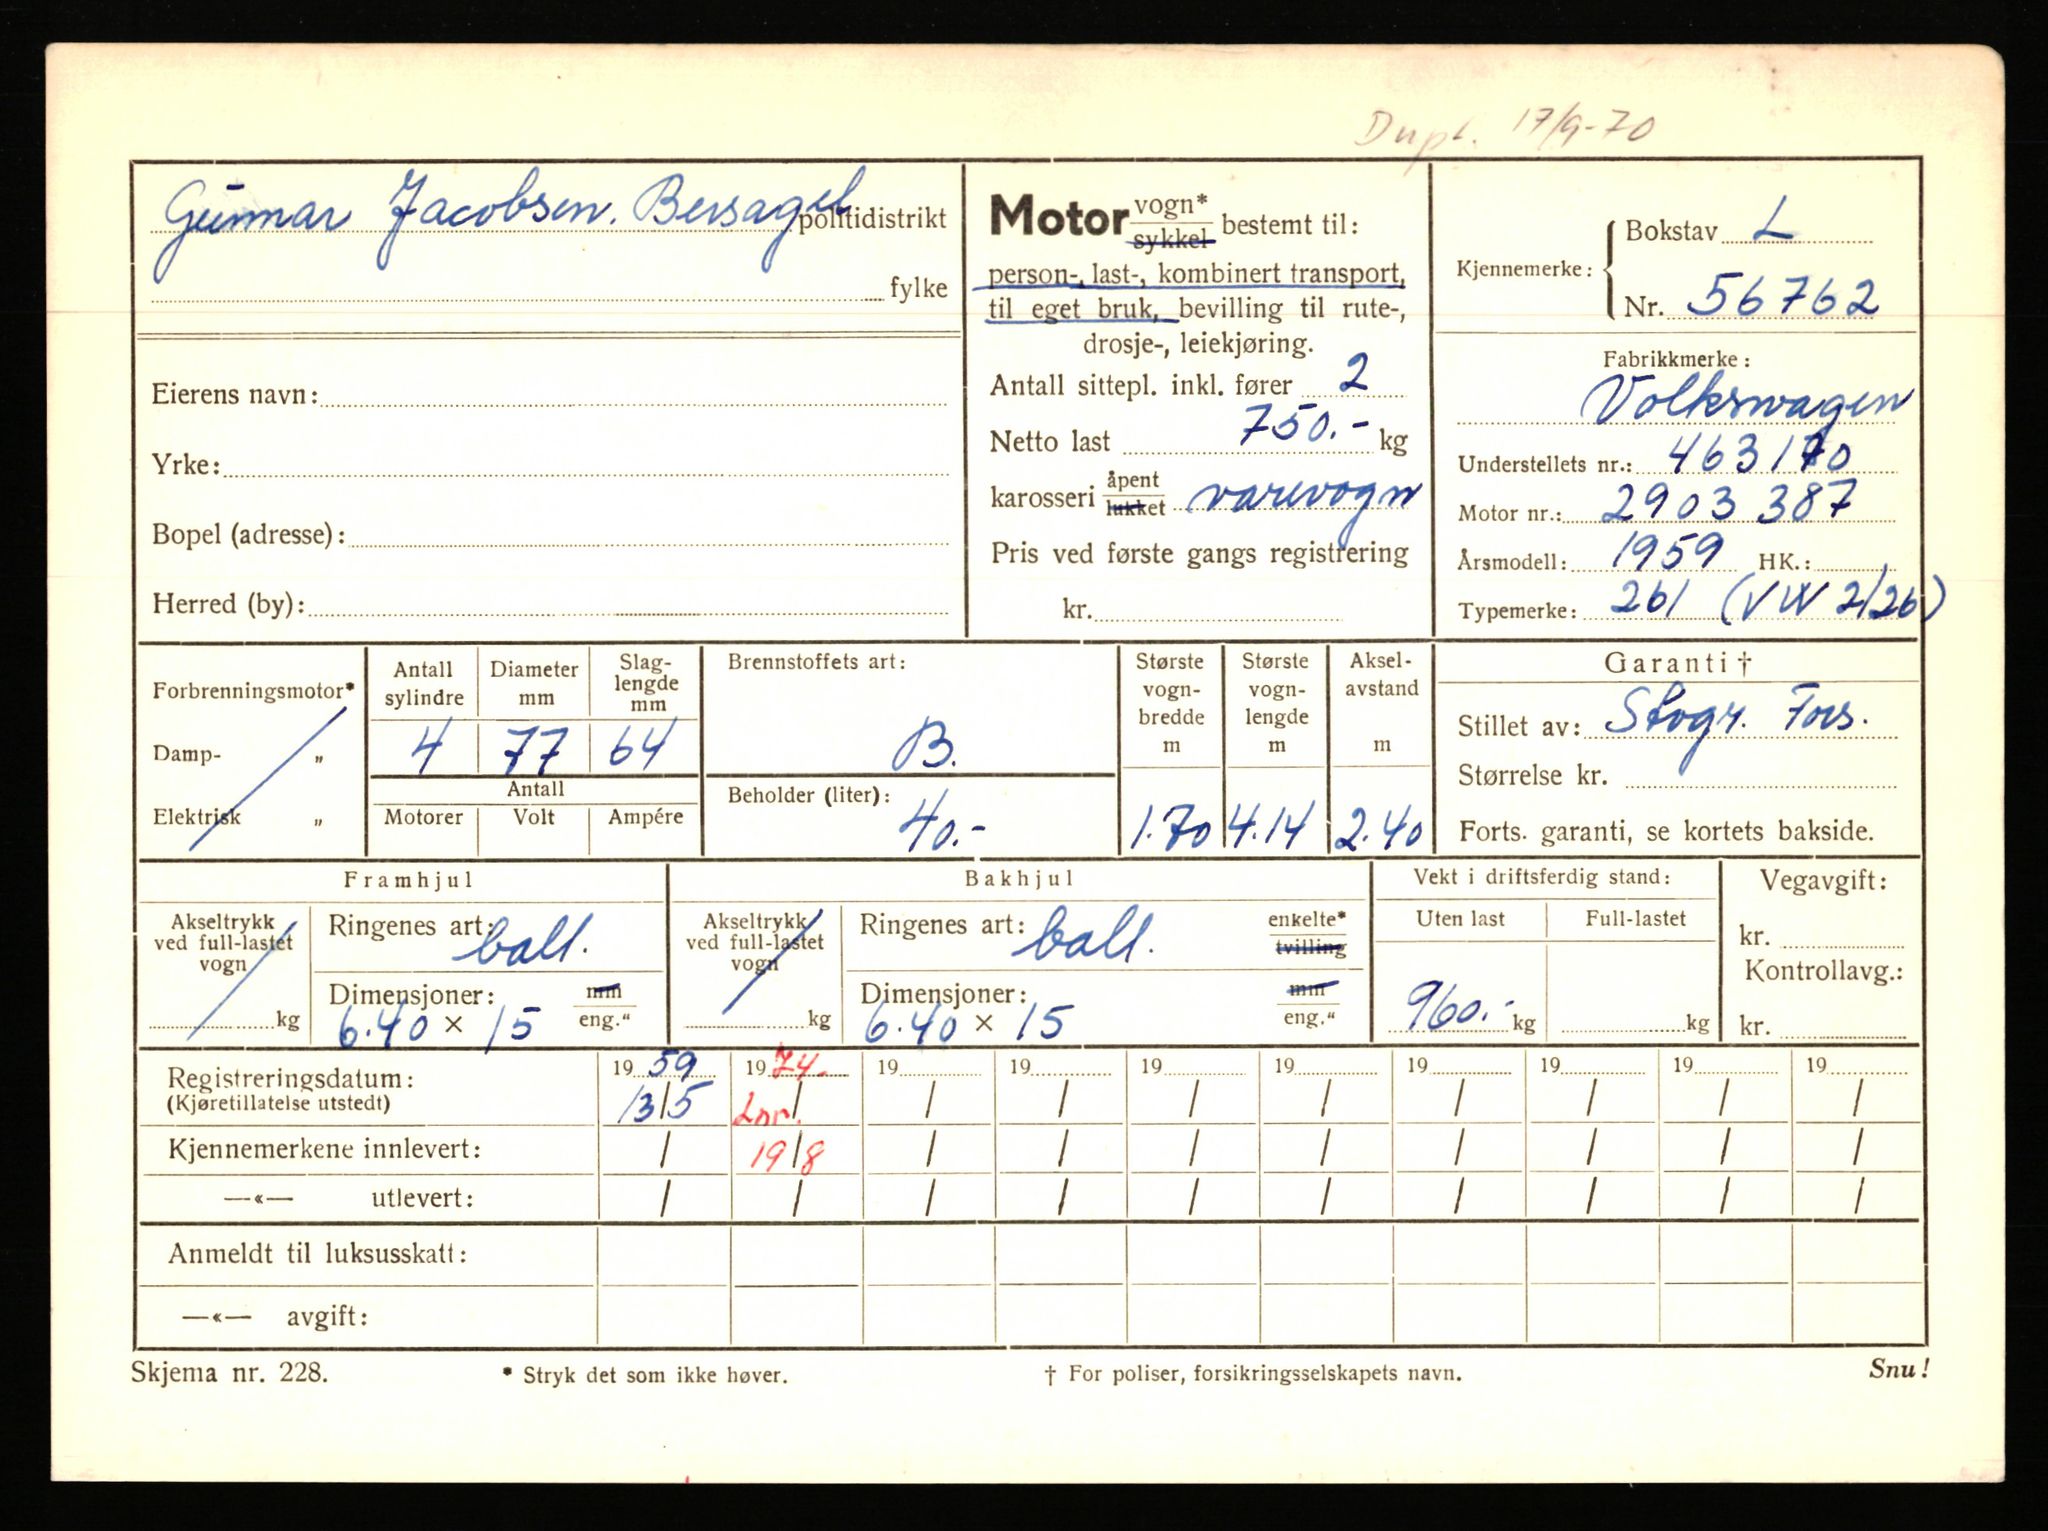 Dupl. 17/9-70
Gunnar Jacobsen. Bersagel politidistrikt
fylke
Eierens navn:
Yrke:
Bopel (adresse):
Herred (by):
Motor vogn* sykkel bestemt til:
person-, last-, kombinert transport,
til eget bruk, bevilling til rute-,
drosje-, leiekjøring.
Antall sittepl. inkl. fører 2
Netto last 750.- kg
karosseri åpent lukket varevogn
Pris ved første gangs registrering
kr.
Kjennemerke: Bokstav L
Nr. 56762
Fabrikkmerke:
Volkswagen
Understellets nr.: 463170
Motor nr.: 2903387
Årsmodell: 1959 HK.:
Typemerke: 261 (VW 2/26)
Forbrenningsmotor*
Damp- "
Elektrisk "
Antall sylindre
4
Diameter mm
77
Slag-lengde mm
64
Antall
Motorer Volt Ampére
Brennstoffets art:
B.
Beholder (liter):
40.-
Største vogn-bredde m
1.70
Største vogn-lengde m
4.14
Aksel-avstand m
2.40
Garanti †
Stillet av: Stvgr. Fors.
Størrelse kr.
Forts. garanti, se kortets bakside.
Framhjul
Akseltrykk ved full-lastet vogn
kg
Ringenes art: ball.
Dimensjoner: mm eng."
6.40 × 15
Bakhjul
Akseltrykk ved full-lastet vogn
kg
Ringenes art: ball. enkelte* tvilling
Dimensjoner: mm eng."
6.40 × 15
Vekt i driftsferdig stand:
Uten last Full-lastet
960.- kg kg
Vegavgift:
kr.
Kontrollavg.:
kr.
Registreringsdatum: 19 59 19 74. 19 19 19 19 19 19 19 19
(Kjøretillatelse utstedt) 13/5 Lnr. / / / / / / / / /
Kjennemerkene innlevert: / 19/8 / / / / / / / /
—«— utlevert: / / / / / / / / / /
Anmeldt til luksusskatt:
—«— avgift:
Skjema nr. 228. * Stryk det som ikke høver. † For poliser, forsikringsselskapets navn. Snu!